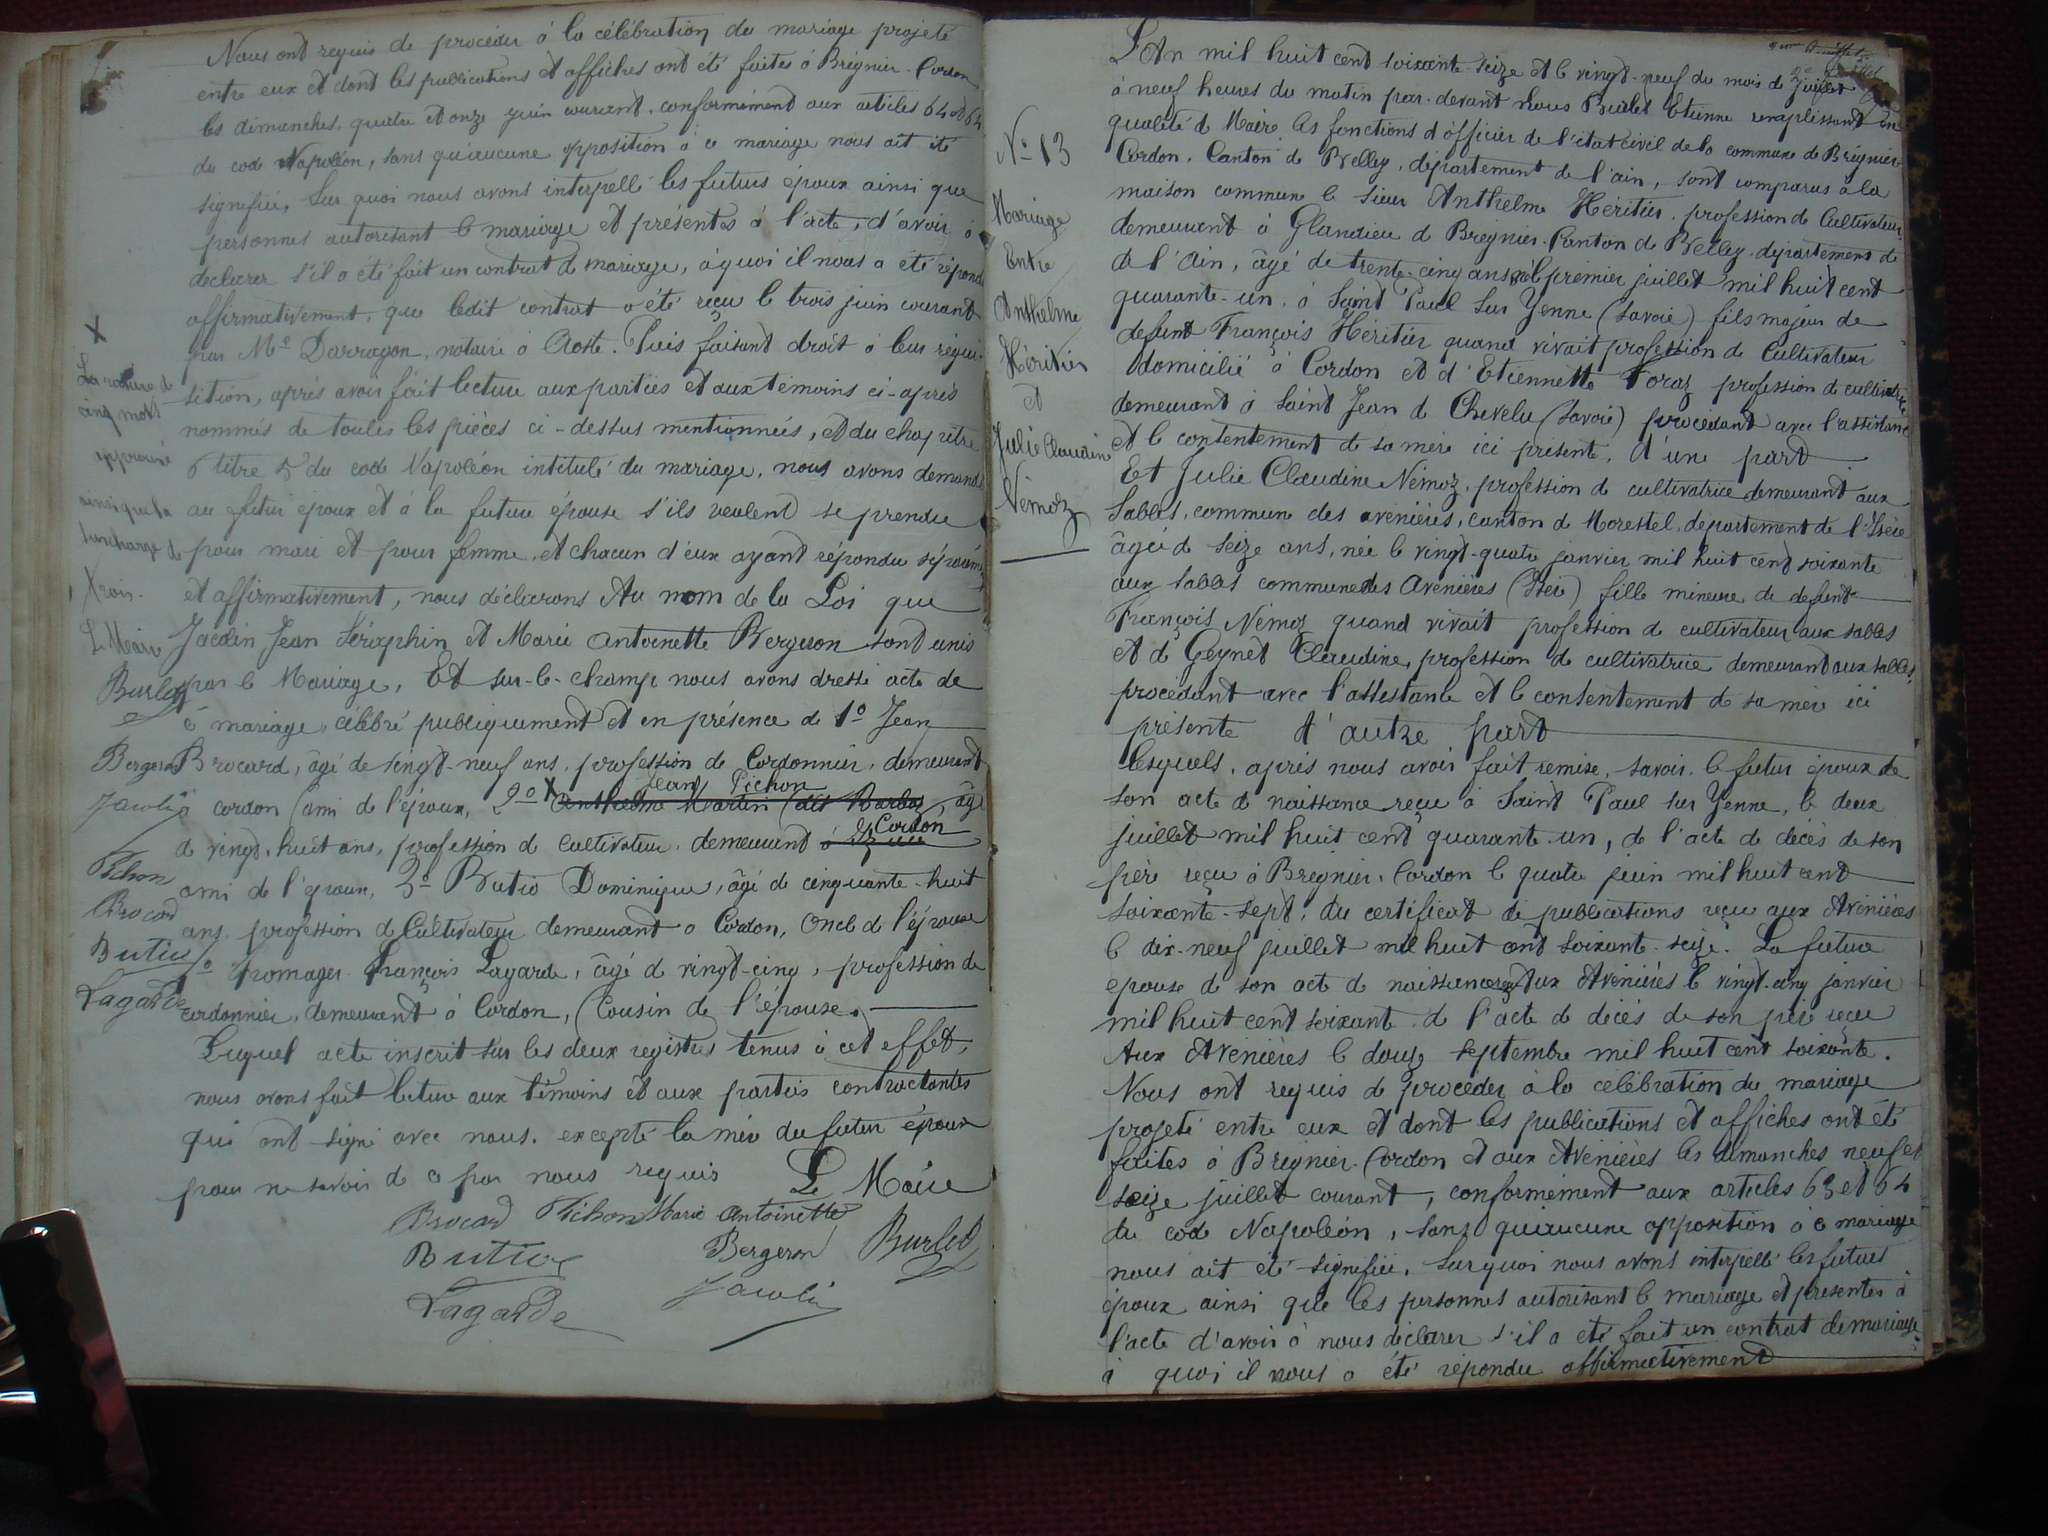 Nous ont requis de procéder à la célébration du mariage projeté
entre eux et dont les publications et affiches ont été faites à Brégnier-Cordon
les dimanches, quatre et onze juin courant, conformément aux articles 64 et 64
du code Napoléon, sans qu'aucune opposition à ce mariage nous ait été
signifiée, Sur quoi nous avons interpellé les futurs époux ainsi que
personnes autorisant le mariage et présentes à l'acte, d'avoir à
déclarer s'il a été fait un contrat de mariage, à quoi il nous a été répondu
affirmativement, que ledit contrat a été reçu le trois juin courant
par Me Darragon, notaire à Aoste. Puis faisant droit à leur réqui-
sition, après avoir fait lecture aux parties et aux témoins ci-après
nommés de toutes les pièces ci-dessus mentionnées, et du chapitre
6 titre 5 du code Napoléon intitulé du mariage, nous avons demandé
au futur époux et à la future épouse s'ils veulent se prendre
pour mari et pour femme, et chacun d'eux ayant répondu séparém
et affirmativement, nous déclarons Au nom de la Loi que
Jacolin Jean Séraphin et Marie Antoinette Bergeron sont unis
par le Mariage, Et sur-le-champ nous avons dressé acte de
ce mariage célébré publiquement et en présence de 1o Jean
Brocard, âgé de vingt-neuf ans, profession de Cordonnier, demeurant
Jean Pichon
à cordon (ami de l'époux, 2o X Anthelme Martin (dit Barlas, âgé
Cordon
de vingt-huit ans, profession de Cultivateur, demeurant à
ami de l'époux, 3o Butio Dominique, âgé de cinquante-huit
ans, profession de Cultivateur demeurant à Cordon, Oncle de l'épouse
4o Fromager François Lagarde, âgé de vingt-cinq, profession de
cordonnier, demeurant à Cordon, (Cousin de l'épouse.
Duquel acte inscrit sur les deux registres tenus à cet effet,
nous avons fait lecture aux témoins et aux parties contractantes
qui ont signé avec nous, excepté la mère du futur époux
pour ne savoir de ce par nous requis Le Maire
Brocard Pichon Marie Antoinette
Butio Bergeron Burlet
Lagarde Jacolin
X
La rature de
cinq mots
approuvé
ainsi que la
surcharge de
X rois.
Le Maire
Burlet
Bergeron
Jacolin
Pichon
Brocard
Butio
Lagarde
No 13
Mariage
Entre
Anthelme
Héritier
et
Julie Claudine
Némoz
L'An mil huit cent soixante-seize et le vingt-neuf du mois de Juillet
à neuf heures du matin par-devant Nous Burlet Etienne remplissant en
qualité de Maire, les fonctions d'officier de l'état civil de la commune de Brégnier-
Cordon, Canton de Belley, département de l'ain, sont comparus à la
maison commune le sieur Anthelme Héritier, profession de Cultivateur,
demeurant à Glandieu de Brégnier, Canton de Belley, département de
de l'Ain, âgé de trente-cinq ans né le premier juillet mil huit cent
quarante-un, à Saint Paul sur Yenne (Savoie) fils majeur de
défunt François Héritier quand vivait profession de Cultivateur
domicilié à Cordon et d'Etiennette Foraz profession de cultivatrice
demeurant à Saint Jean de Chevelu (Savoie) procédant avec l'assistance
et le consentement de sa mère ici présente, d'une part
Et Julie Claudine Némoz, profession de cultivatrice demeurant aux
Sables, commune des avenières, canton de Morestel, département de l'Isère
âgée de seize ans, née le vingt-quatre janvier mil huit cent soixante
aux sables commune des Avenières (Isère) fille mineure de défunt
François Némoz quand vivait profession de cultivateur aux sables
et de Geynet Claudine, profession de cultivatrice demeurant aux sables,
procédant avec l'assistance et le consentement de sa mère ici
présente d'autre part
Lesquels, après nous avoir fait remise, savoir, le futur époux de
son acte de naissance reçu à Saint Paul sur Yenne, le deux
juillet mil huit cent quarante-un, de l'acte de décès de son
père reçu à Brégnier-Cordon le quatre juin mil huit cent
soixante-sept, du certificat de publications reçu aux Avenières
le dix-neuf juillet mil huit cent soixante-seize. La future
épouse de son acte de naissance reçu Aux Avenières le vingt-cinq janvier
mil huit cent soixante, de l'acte de décès de son père reçu
Aux Avenières le douze septembre mil huit cent soixante.
Nous ont requis de procéder à la célébration du mariage
projeté entre eux et dont les publications et affiches ont été
faites à Brégnier-Cordon et aux Avenières les dimanches neuf et
seize juillet courant, conformément aux articles 63 et 64
du code Napoléon, sans qu'aucune opposition à ce mariage
nous ait été signifiée, Sur quoi nous avons interpellé les futurs
époux ainsi que les personnes autorisant le mariage et présentes à
l'acte d'avoir à nous déclarer s'il a été fait un contrat de mariage
à quoi il nous a été répondu affirmativement